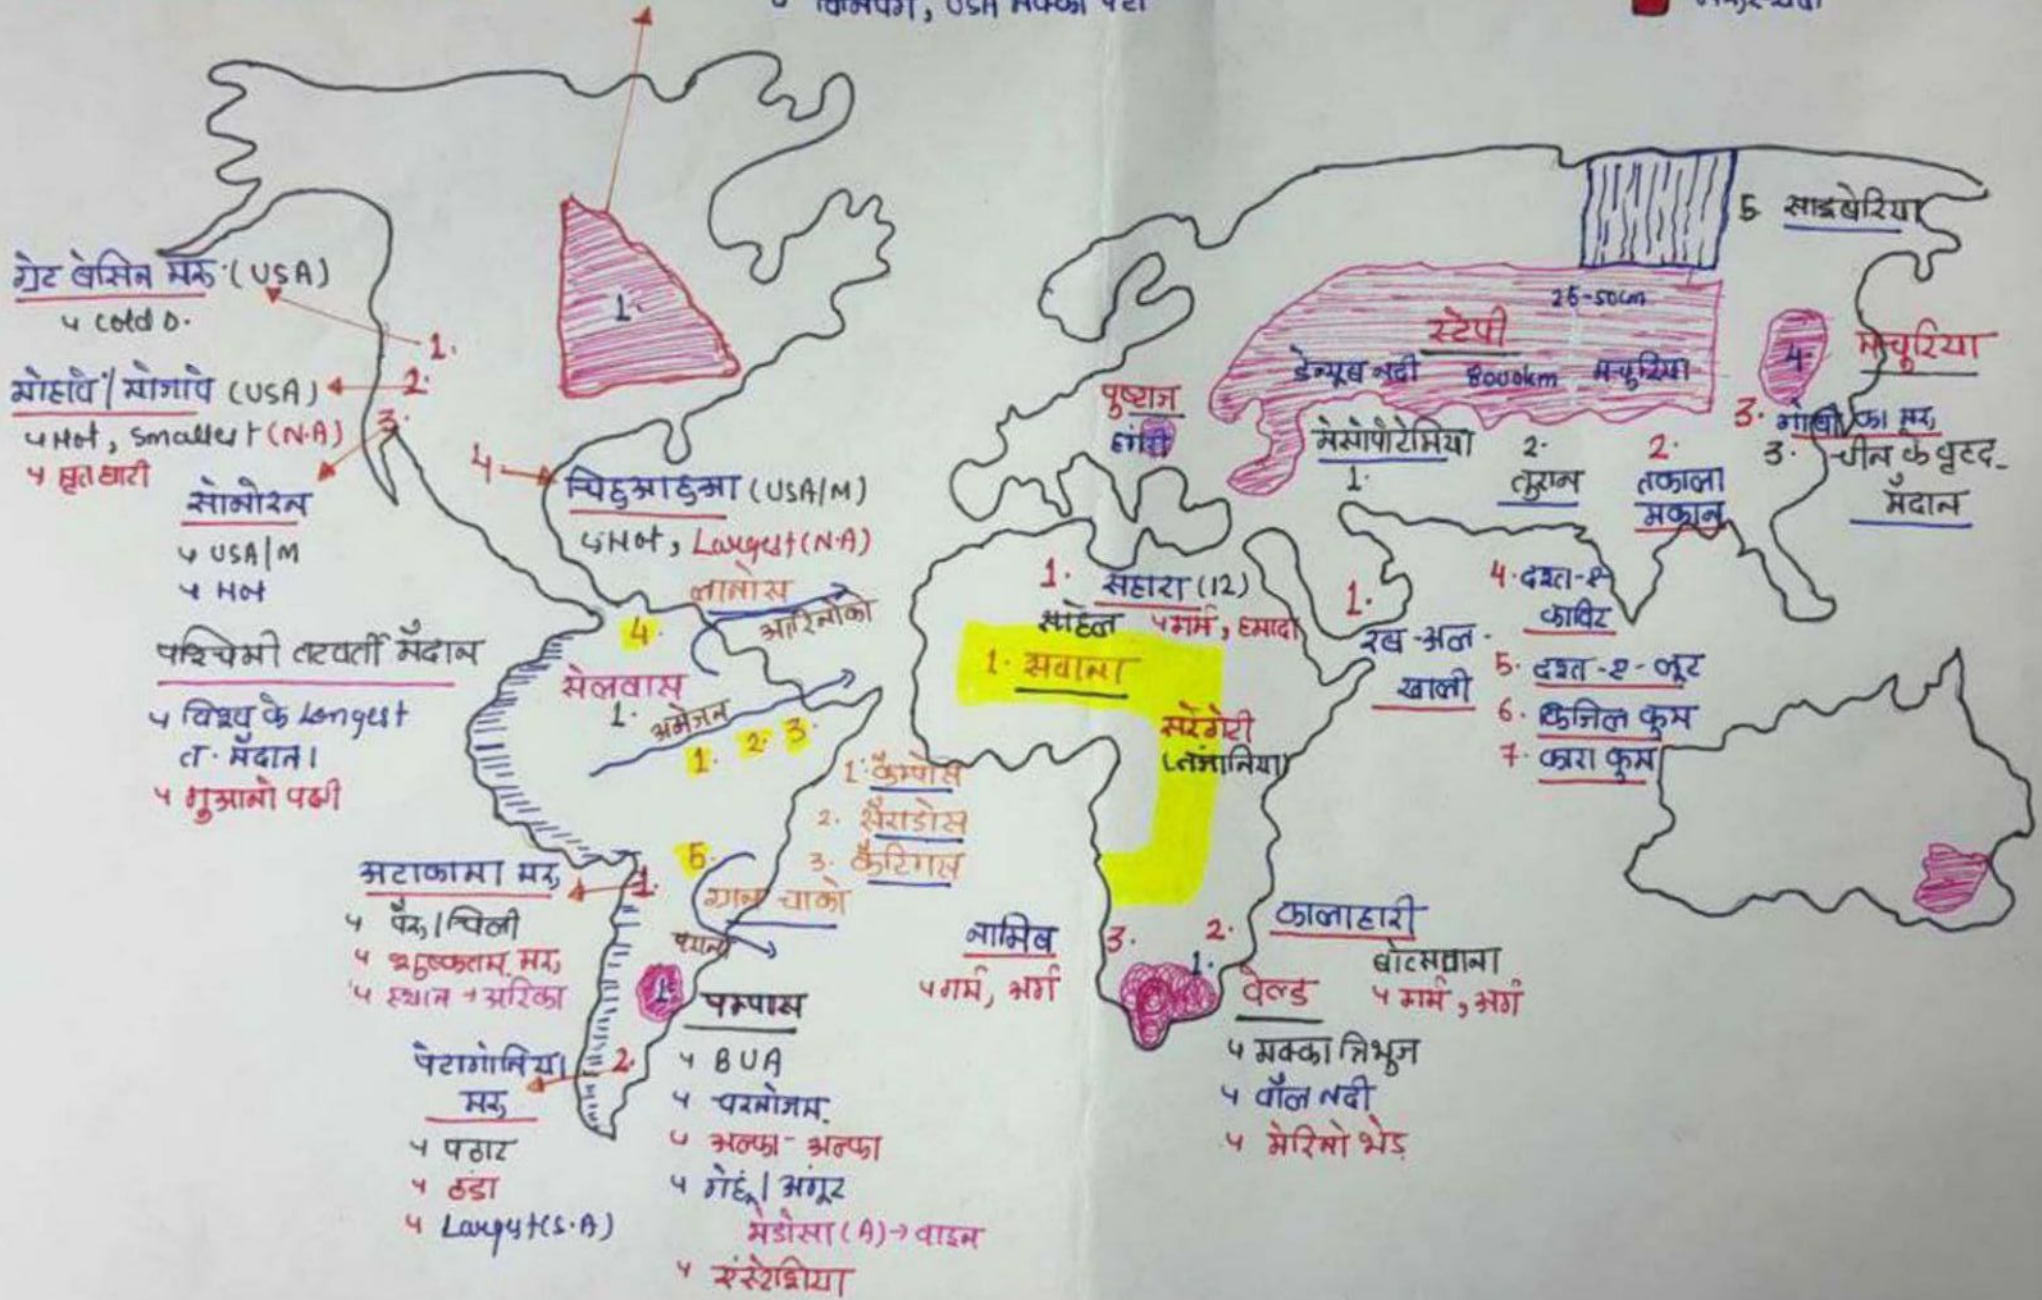 USA मक्का पेटी
ग्रेट बेसिन मरु (USA)
↳ Cold D.
1.
मोहावे / मोजावे (USA)
2.
↳ Hot, Smallest (N.A)
↳ मृत घाटी
3.
सोनोरन
↳ USA/M
↳ Hot
1.
4
चिहुआहुआ (USA/M)
↳ Hot, Largest (N.A)
लानोस
ओरिनोको
4.
पश्चिमी तटवर्ती मैदान
↳ विश्व के Longest
त. मैदान।
↳ गुआनो पक्षी
सेलवास
1.
अमेजन
1. 2. 3.
1. कैम्पोस
2. सैराडोस
3. कैटिंगास
5.
ग्रान चाको
अटाकामा मरु
1.
↳ पेरू / चिली
↳ शुष्कतम मरु
↳ स्थान → अरिका
पेटागोनिया
मरु
2.
↳ पठार
↳ ठंडा
↳ Largest (S.A)
1.
पम्पास
↳ BUA
↳ चरनोजम
↳ अल्फा-अल्फा
↳ गेहूं / अंगूर
मेंडोसा (A) → वाइन
↳ एंस्टेंशिया
5. साइबेरिया
25-50cm
स्टेपी
डेन्यूब नदी 8000km मंचुरिया
4.
मंचुरिया
पुस्टाज
हंगरी
मेसोपोटेमिया
1.
2.
तुरान
2.
तकाला
मकान
3. गोबी का मरु
3. चीन के वृहद
मैदान
1. सहारा (12)
↳ गर्म, हमादा
साहेल
1. सवाना
सरेंगेटी
(तंजानिया)
1.
रब-अल-
खाली
4. दश्त-ए-
काविर
5. दश्त-ए-लूट
6. किजिल कुम
7. कारा कुम
नामिब
3.
↳ गर्म, अर्ग
2.
कालाहारी
बोत्सवाना
↳ गर्म, अर्ग
1.
वेल्ड
↳ मक्का त्रिभुज
↳ वॉल नदी
↳ मेरिनो भेड़